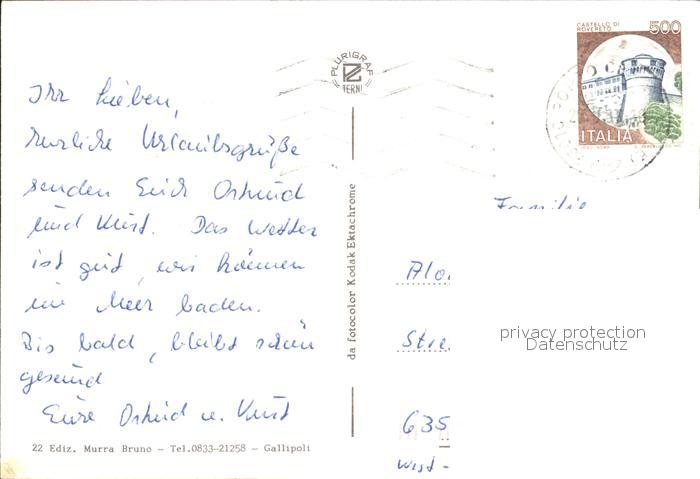 Ihr Lieben,
herzliche Urlaubsgrüße
senden Euch Ostrud
und Kurt. Das Wetter
ist gut, wir können
im Meer baden.
Bis bald, bleibt schön
gesund
Eure Ostrud u. Kurt
22 Ediz. Murra Bruno – Tel.0833–21258 – Gallipoli
PLURIGRAF
TERNI
da fotocolor Kodak Ektachrome
CASTELLO DI
ROVERETO
500
ITALIA
Familie
Alo
Stre
635
West-
privacy protection
Datenschutz